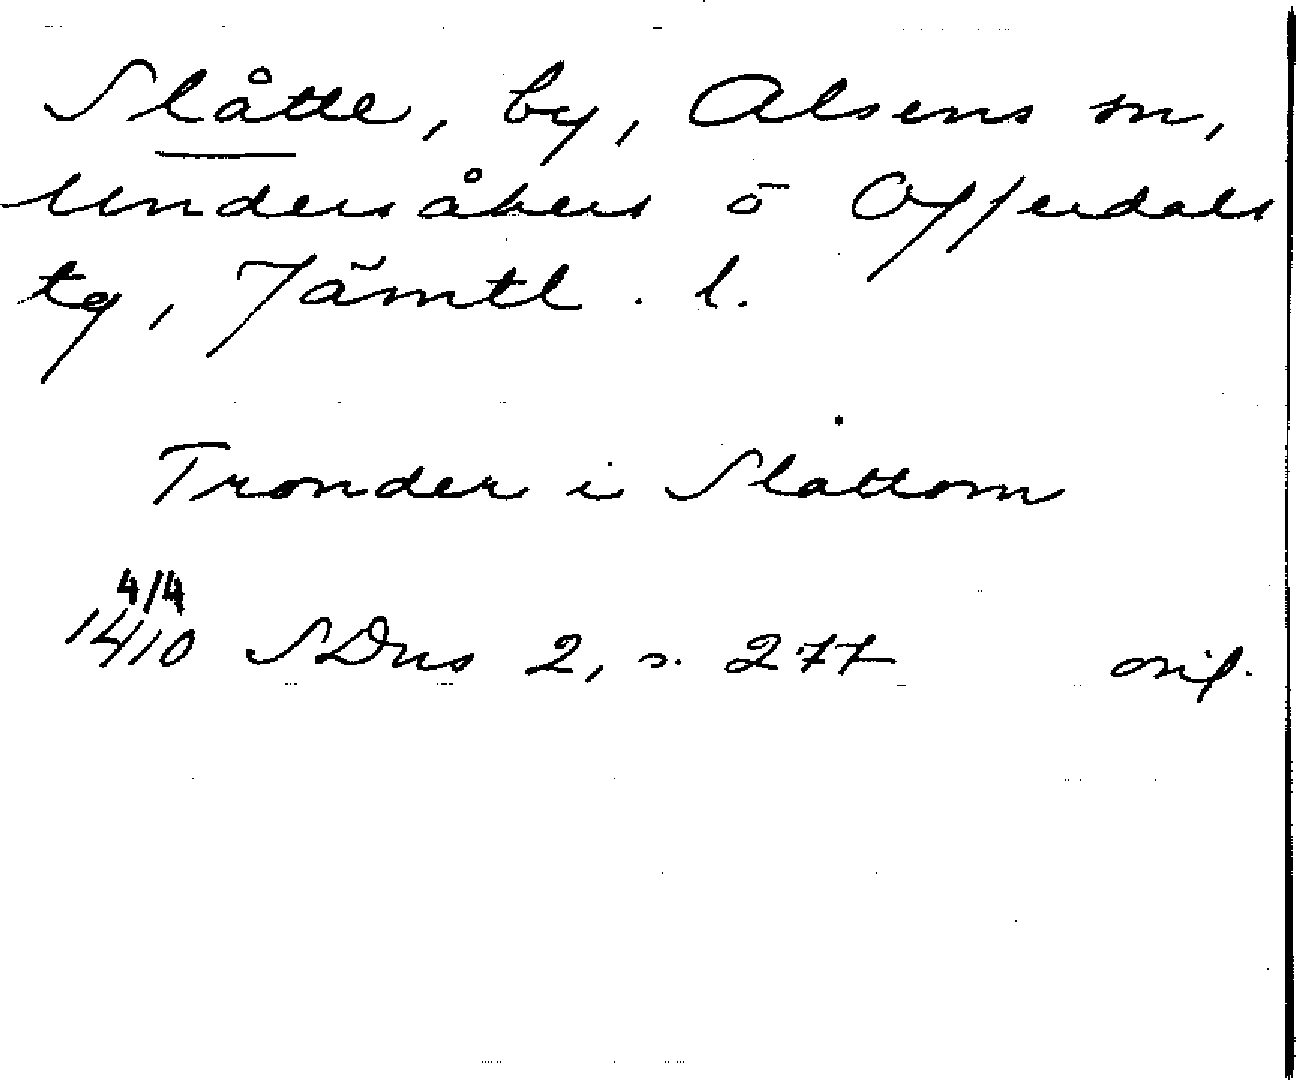 Slåtte, by, Alsens sn,
Undersåkers o Offerdals
tg, Jämtl. l.
Tronder i Slattom
4/4
1410 SDns 2, s. 277 orig.